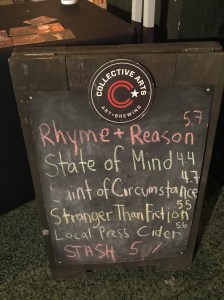 COLLECTIVE ARTS
ART • BREWING
5.7
Rhyme + Reason
State of Mind 4.4
4.7
Saint of Circumstance
Stranger Than Fiction 5.5
Local Press Cider 5.6
STASH 5 %